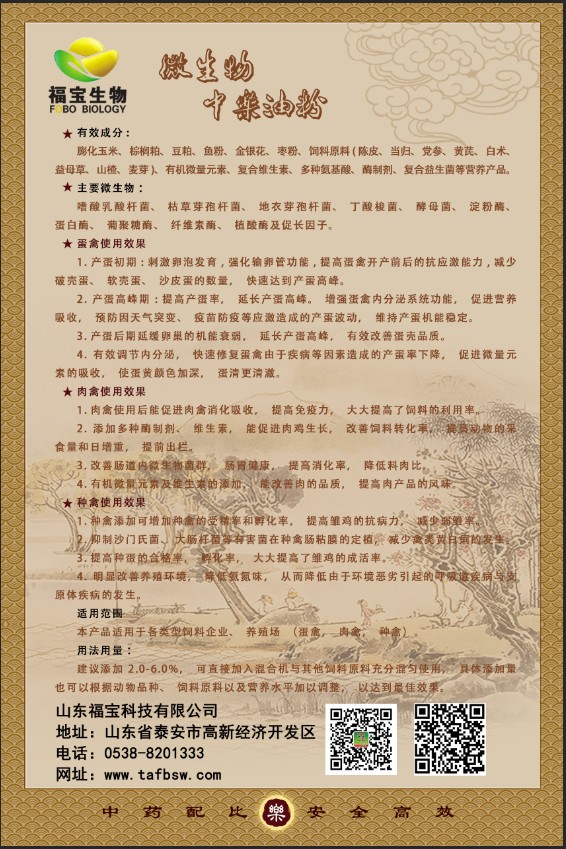 福宝生物
FOBO BIOLOGY
微生物
中药油粉
★有效成分：
膨化玉米、棕榈粕、豆粕、鱼粉、金银花、枣粉、饲料原料(陈皮、当归、党参、黄芪、白术、
益母草、山楂、麦芽)、有机微量元素、复合维生素、多种氨基酸、酶制剂、复合益生菌等营养产品。
★主要微生物：
嗜酸乳酸杆菌、枯草芽孢杆菌、地衣芽孢杆菌、丁酸梭菌、酵母菌、淀粉酶、
蛋白酶、葡聚糖酶、纤维素酶、植酸酶及促长因子。
★蛋禽使用效果
1.产蛋初期：刺激卵泡发育，强化输卵管功能，提高蛋禽开产前后的抗应激能力，减少
破壳蛋、软壳蛋、沙皮蛋的数量，快速达到产蛋高峰。
2.产蛋高峰期：提高产蛋率，延长产蛋高峰。增强蛋禽内分泌系统功能，促进营养
吸收，预防因天气突变、疫苗防疫等应激造成的产蛋波动，维持产蛋机能稳定。
3.产蛋后期延缓卵巢的机能衰弱，延长产蛋高峰，有效改善蛋壳品质。
4.有效调节内分泌，快速修复蛋禽由于疾病等因素造成的产蛋率下降，促进微量元
素的吸收，使蛋黄颜色加深，蛋清更清澈。
★肉禽使用效果
1.肉禽使用后能促进肉禽消化吸收，提高免疫力，大大提高了饲料的利用率。
2.添加多种酶制剂、维生素，能促进肉鸡生长，改善饲料转化率，提高动物的采
食量和日增重，提前出栏。
3.改善肠道内微生物菌群，肠胃健康，提高消化率，降低料肉比。
4.有机微量元素及维生素的添加，能改善肉的品质，提高肉产品的风味。
★种禽使用效果
1.种禽添加可增加种禽的受精率和孵化率，提高雏鸡的抗病力，减少弱雏率。
2.抑制沙门氏菌、大肠杆菌等有害菌在种禽肠粘膜的定植，减少禽类黄白痢的发生。
3.提高种蛋的合格率，孵化率，大大提高了雏鸡的成活率。
4.明显改善养殖环境，降低氨氮味，从而降低由于环境恶劣引起的呼吸道疾病与支
原体疾病的发生。
适用范围
本产品适用于各类型饲料企业、养殖场（蛋禽，肉禽，种禽）
用法用量：
建议添加2.0-6.0%，可直接加入混合机与其他饲料原料充分混匀使用，具体添加量
也可以根据动物品种、饲料原料以及营养水平加以调整，以达到最佳效果。
山东福宝科技有限公司
地址：山东省泰安市高新经济开发区
电话：0538-8201333
网址：www.tafbsw.com
中药配比 樂 安全高效